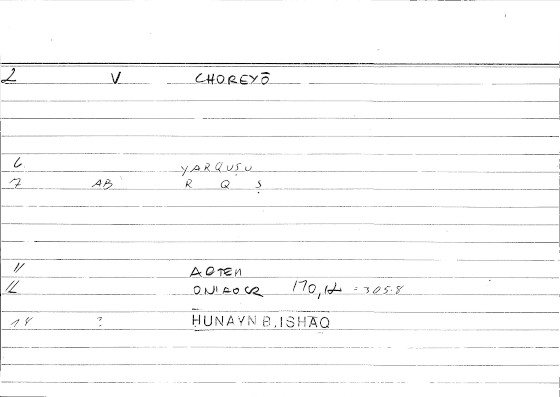 2 V CHOREYŌ
6 YARQUṢU
7 AB R Q Ṣ
11 ARTEM
12 ONIROCR = 305.8
14 ? HUNAYN B. ISHAQ